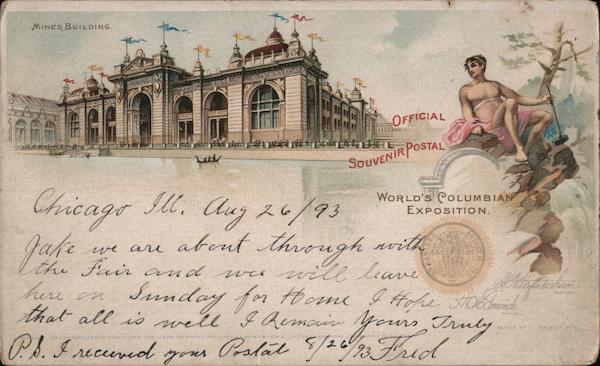 MINES BUILDING.
OFFICIAL
SOUVENIR POSTAL
WORLD'S COLUMBIAN
EXPOSITION.
Chicago Ill. Aug 26/93
Jake we are about through with
the Fair and we will leave
here on Sunday for Home I Hope
that all is well I Remain Yours Truly
P.S. I received your Postal 8/26/93 Fred